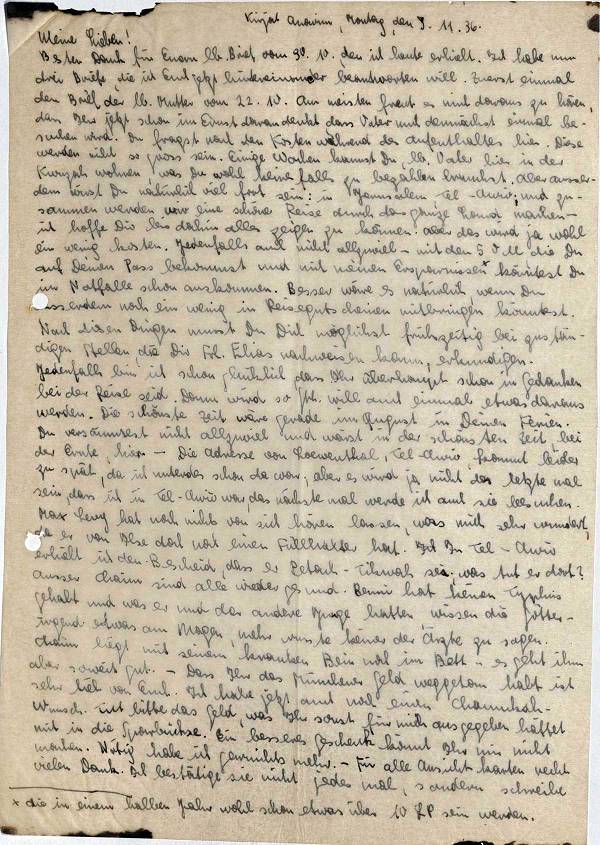 Kirjat Anavim, Montag, den 9. 11. 36.
Meine Lieben!
Besten Dank für Euern lb. Brief vom 30. 10. den ich heute erhielt. Ich habe nun
drei Briefe, die ich Euch jetzt hintereinander beantworten will. Zuerst einmal
den Brief der lb. Mutter vom 22. 10. Am meisten freut es mich daraus zu hören,
dass Ihr jetzt schon im Ernst daran denkt dass Vater mich demnächst einmal be-
suchen wird. Du fragst nach den Kosten während des Aufenthaltes hier. Diese
werden nicht so gross sein. Einige Wochen kannst Du, lb. Vater hier in der
Kwuzah wohnen, was Du wohl keinesfalls zu bezahlen brauchst. Aber ausser-
dem wirst Du natürlich viel fort sein: in Jerusalem, Tel-Awiw, und zu-
sammen werden wir eine schöne Reise durch das ganze Land machen –
ich hoffe Dir bis dahin alles zeigen zu können. Aber das wird ja wohl
ein wenig kosten. Jedenfalls auch nicht allzuviel – mit den die Du
auf Deinen Pass bekommst und mit meinen Ersparnissen x könntest Du
im Notfalle schon auskommen. Besser wäre es natürlich, wenn Du
ausserdem noch ein wenig in Reisegutscheinen mitbringen könntest.
Nach diesen Dingen musst Du Dich möglichst frühzeitig bei zustän-
digen Stellen, die Dir Frl. Elias nachweisen kann, erkundigen.
Jedenfalls bin ich schon glücklich dass Ihr überhaupt schon in Gedanken
bei der Reise seid. Dann wird so Gott will auch einmal etwas daraus
werden. Die schönste Zeit wäre gerade im August in Deinen Ferien.
Du versäumtest nicht allzuviel und wärst in der schönsten Zeit, bei
der Ernte, hier – Die Adresse von Loewenthal, Tel-Awiw, kommt leider
zu spät, da ich unterdes schon da war, aber es wird ja nicht das letzte mal
sein, dass ich in Tel-Awiw war, das nächste mal werde ich auch sie besuchen.
Max Levy hat noch nichts von sich hören lassen, was mich sehr wundert,
da er von Ilse doch noch einen Füllhalter hat. In Tel-Awiw
erhielt ich den Bescheid, dass er Petach-Tikwah sei; was tut er dort?
Ausser Chaim sind alle wieder gesund. Benni hat keinen Typhus
gehabt und was er und das andere Junge hatten wissen die Götter –
irgend etwas am Magen, mehr wusste keiner der Ärzte zu sagen.
Chaim liegt mit seinem kranken Bein noch im Bett – es geht ihm
aber soweit gut. – Dass Ihr das Geld weggetan habt ist
sehr lieb von Euch. Ich habe jetzt auch noch einen Channukah-
Wunsch. Tut bitte das Geld, was Ihr sonst für mich ausgegeben hättet
mit in die Sparbüchse. Ein besseres Geschenk könnt Ihr mir nicht
machen. Nötig habe ich garnichts mehr. – Für alle Ansichtskarten recht
vielen Dank. Ich bestätige sie nicht jedes mal, sondern schreibe
x die in einem halben Jahr wohl schon etwas über 10 LP sein werden.